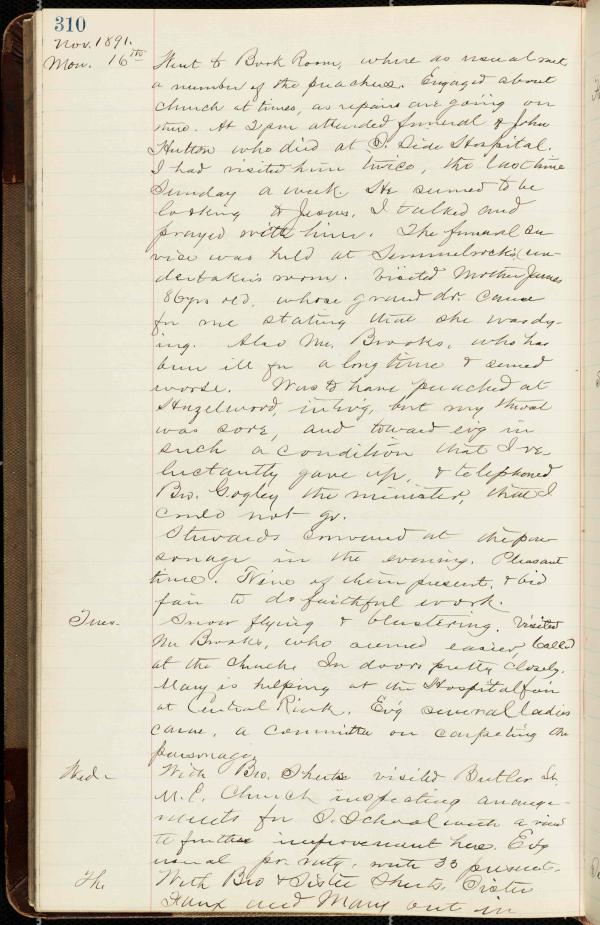 310
Nov. 1891.
Mon. 16th Went to Book Room, where as usual met
a number of the preachers. Engaged about
church at times, as repairs are going on
there. At 2 pm attended funeral of John
Hutton who died at S. Side Hospital.
I had visited him twice, the last time
Sunday a week. He seemed to be
looking to Jesus. I talked and
prayed with him. The funeral ser
vice was held at Semmelrock's (un-
dertaker's room. Visited Mother James
86 yrs old, whose grand dr. came
for me stating that she was dy-
ing. Also Mr. Brooks, who has
been ill for a long time & seemed
worse. Was to have preached at
Hazelwood, in evg, but my throat
was sore, and toward evg in
such a condition that I re-
luctantly gave up, & telephoned
Bro. Gogley the minister, that I
could not go.
Stewards convened at the par
sonage in the evening. Pleasant
time. Nine of them present, & bid
fair to do faithful work.
Tues. Snow flying & blustering. Visited
Mr Brooks, who seemed easier, Called
at the church. In doors pretty closely.
Mary is helping at the Hospital fair
at Central Rink. Ev'g several ladies
came, a committee on carpeting the
parsonage.
Wed. With Bro. Sheets visited Butler St.
M. E. Church inspecting arrange-
ments for S. School with a view
to further improvement here. Ev'g
usual pr. mtg, with 33 present.
Th. With Bro & Sister Sheets, Sister
Faux and Mary out in